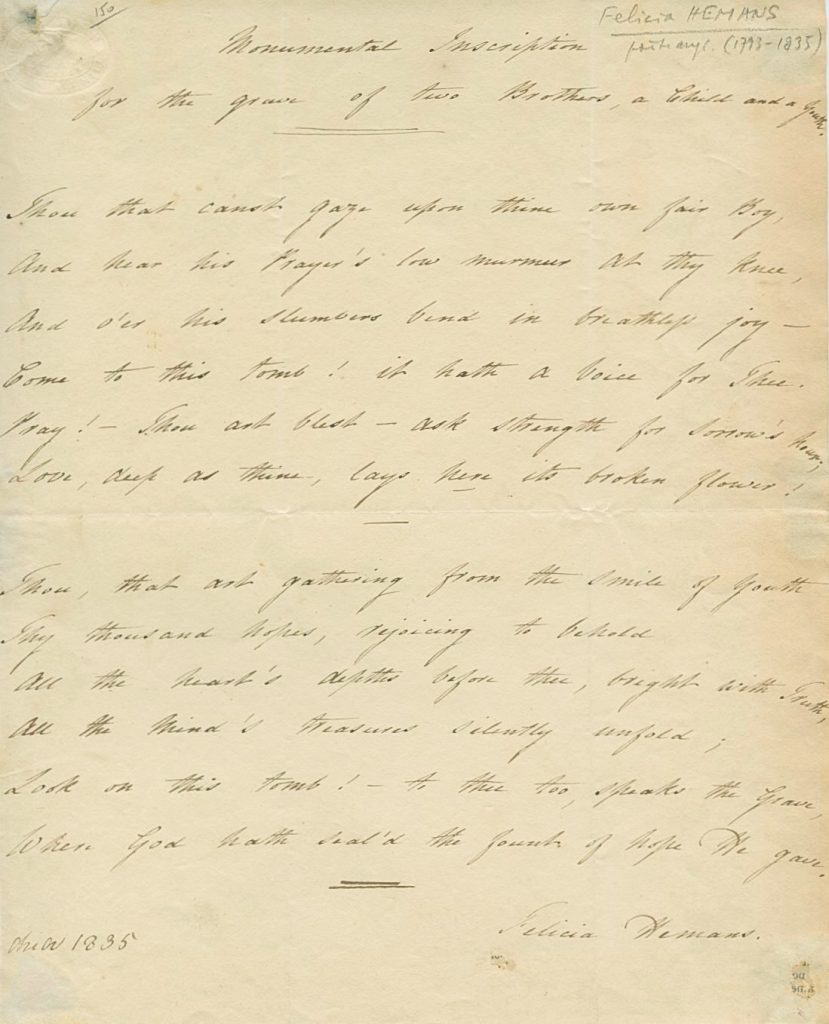 150
Felicia HEMANS
(1793-1835)
Monumental Inscription
for the grave of two Brothers, a Child and a Youth.
Thou that canst gaze upon thine own fair Boy,
And hear his Prayer's low murmur at thy knee,
And o'er his slumbers bend in breathless joy —
Come to this tomb! it hath a Voice for Thee.
Pray! — Thou art blest — ask strength for sorrow's hour;
Love, deep as thine, lays here its broken flower!
Thou, that art gathering from the smile of Youth
Thy thousand hopes, rejoicing to behold
All the heart's depths before thee, bright with Truth,
All the Mind's treasures silently unfold;
Look on this tomb! — to thee too, speaks the Grave,
Where God hath seal'd the fount of hope He gave.
Felicia Hemans.
1835